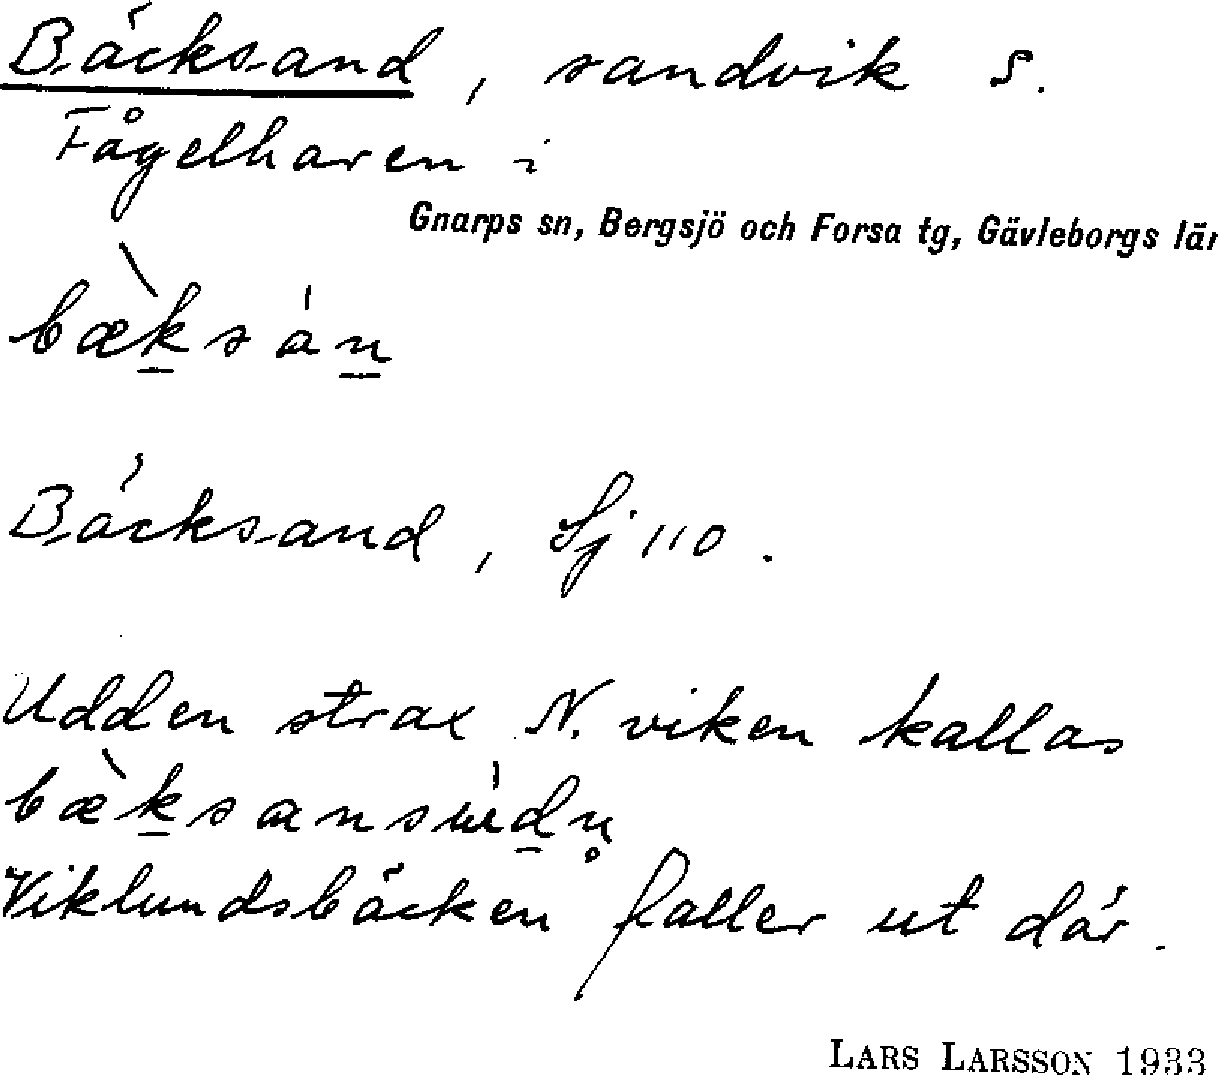 Bäcksand, sandvik S.
Fågelharen i
Gnarps sn, Bergsjö och Forsa tg, Gävleborgs län
bæ̀ksán
Bäcksand, Sj 110.
Udden strax N. viken kallas
bæ̀ksansúdn̥
Viklundsbäcken faller ut där.
LARS LARSSON 1933